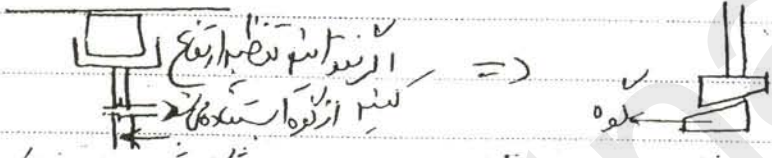 اگر نتوانیم تنظیم ارتفاع
کنیم از گوه استفاده می‌
گوه